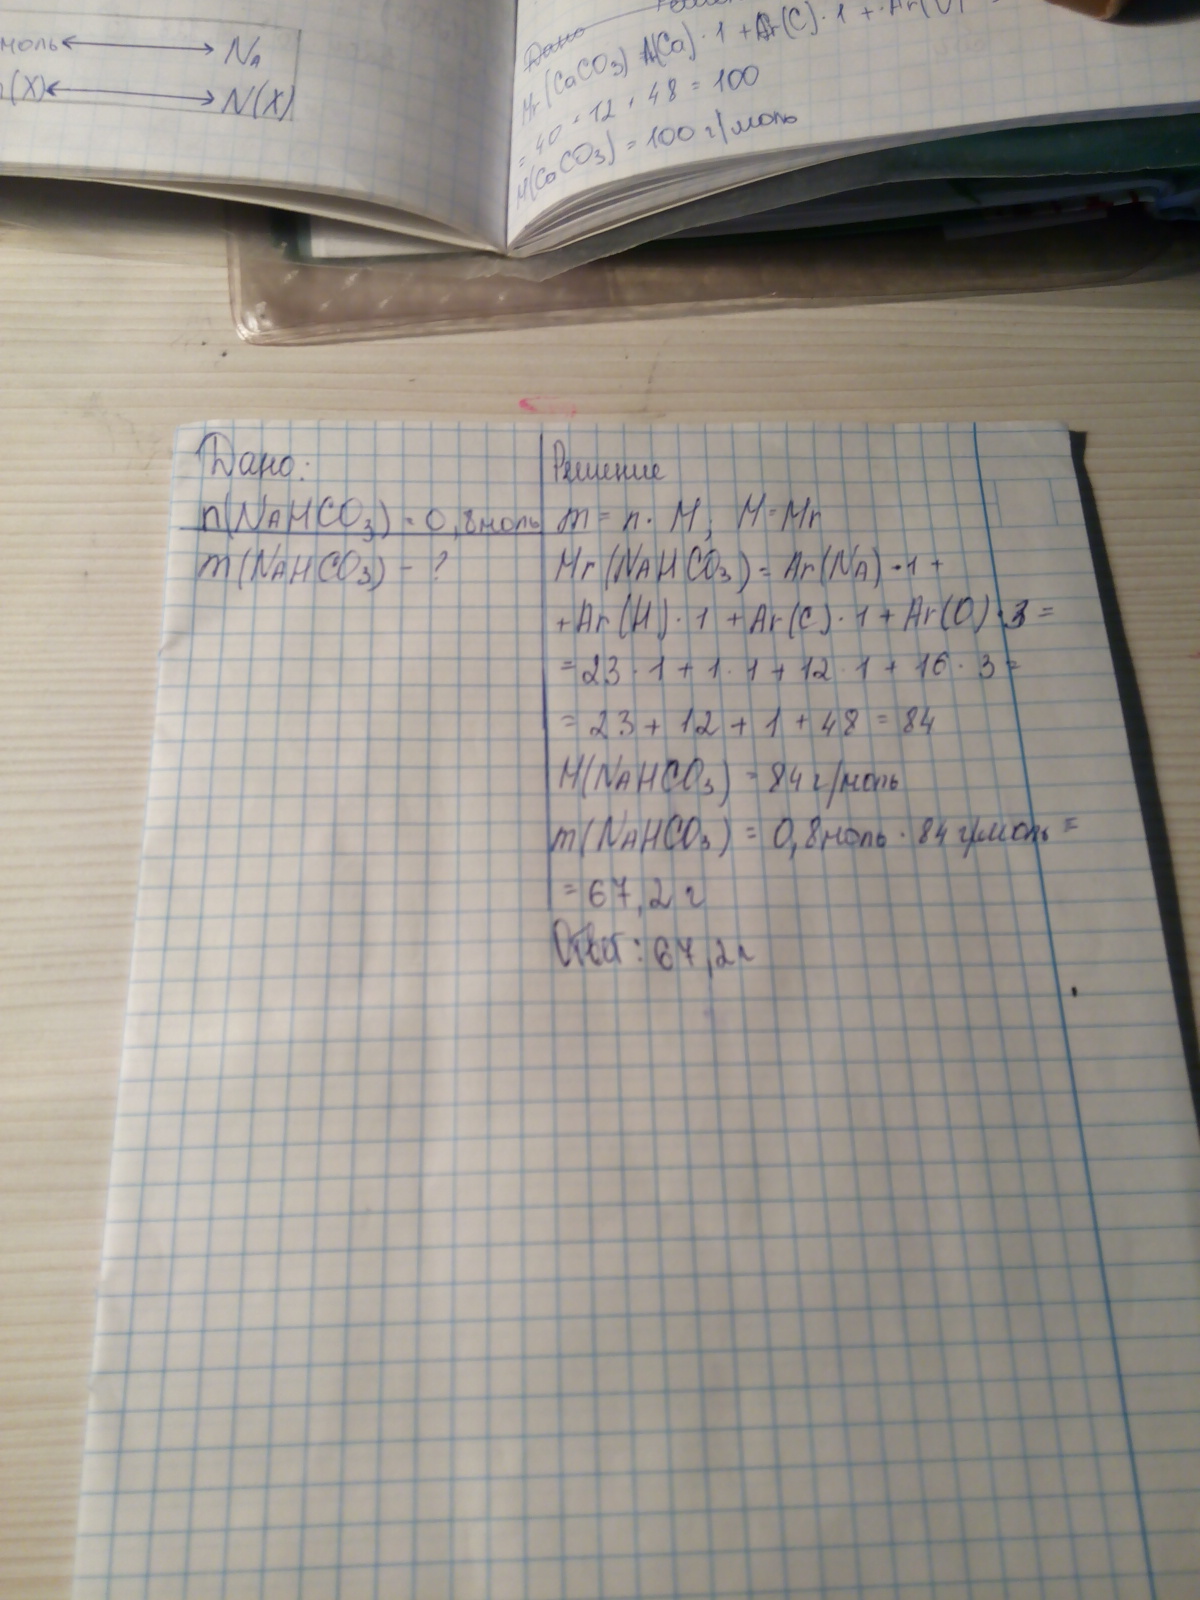 моль ⟷ Nᴀ
(X) ⟷ N(X)
Дано
Mr(CaCO₃) Ar(Ca)·1+Ar(C)·1+·Ar(O)
= 40+12+48=100
M(CaCO₃)=100 г/моль
Дано:
n(NAHCO₃)=0,8моль
m(NAHCO₃) - ?
Решение
m = n · M; M=Mr
Mr(NAHCO₃)= Ar(NA)·1+
+Ar(H)·1+Ar(C)·1+Ar(O)·3=
=23·1+1·1+12·1+16·3=
=23+12+1+48=84
M(NAHCO₃)=84г/моль
m(NAHCO₃)=0,8моль·84г/моль=
=67,2г
Ответ: 67,2г